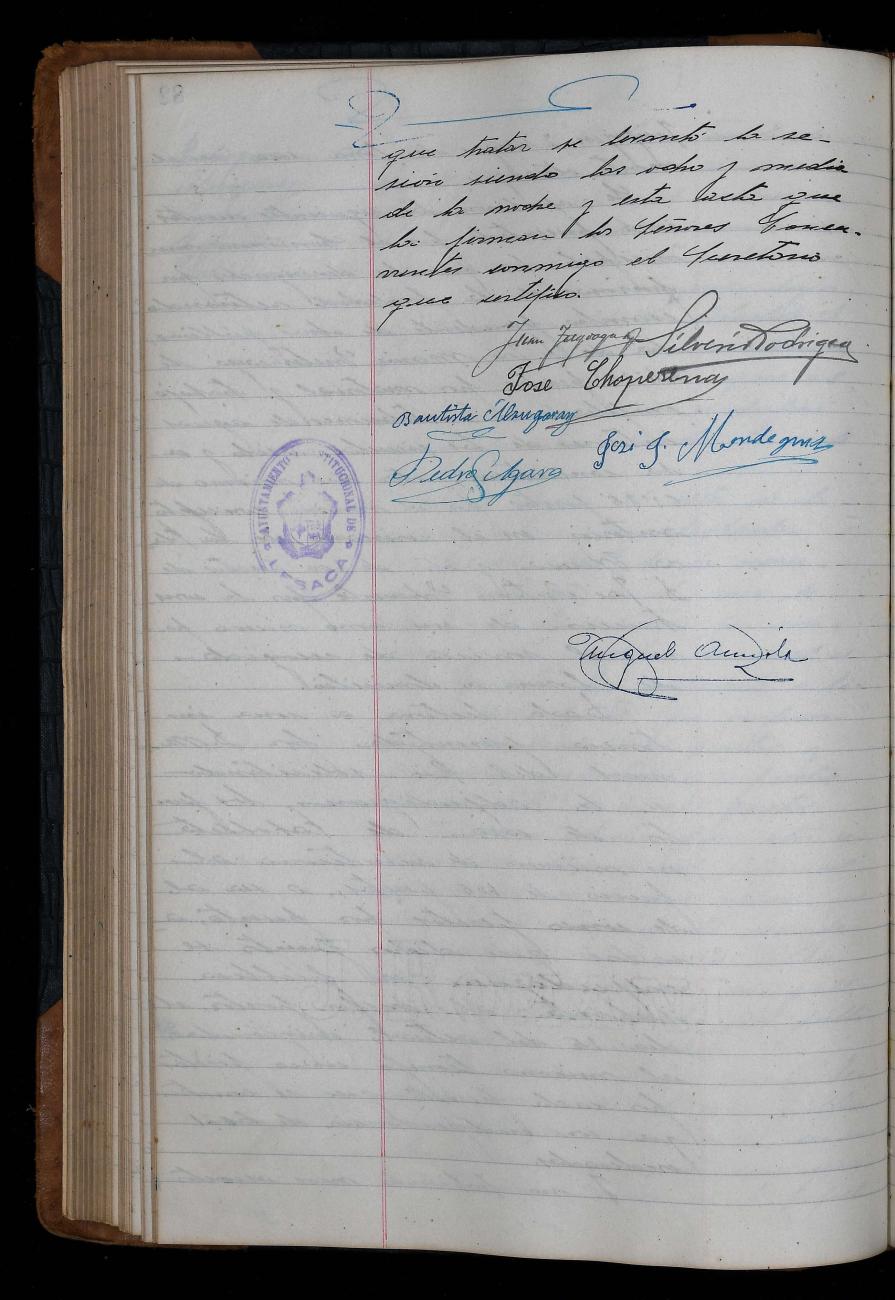 que tratar se levantó la se-
sión siendo las ocho y media
de la noche y esta acta que
la firman los Señores Concu-
rrentes conmigo el Secretario
que certifico.
Silverio Rodriguez
Jose Choperena
Bautista
José J. Mendeguia
Pedro
AYUNTAMIENTO CONSTITUCIONAL DE
LESACA
Miguel